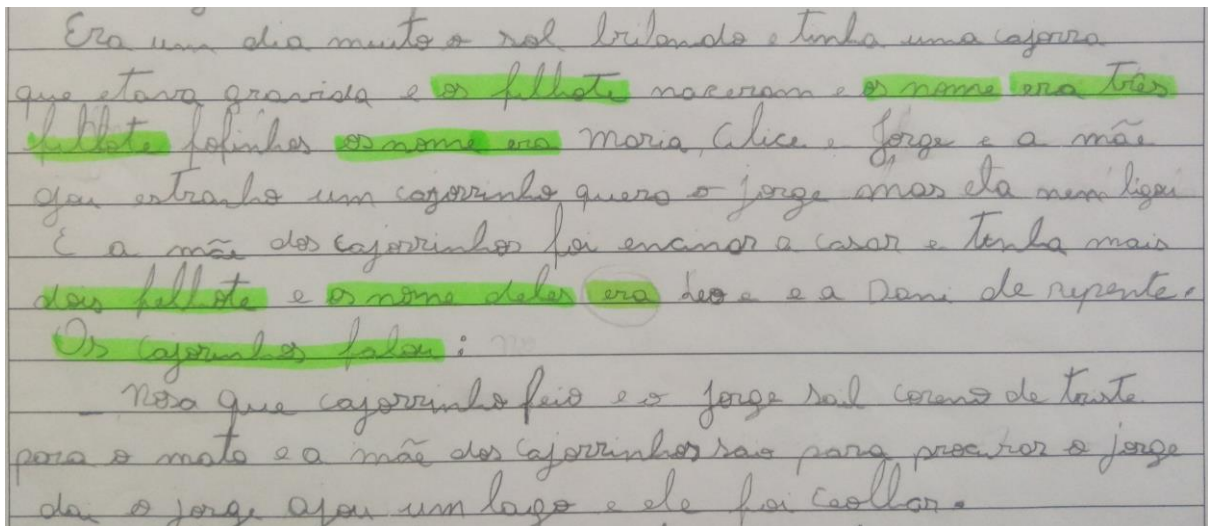 Era um dia muito o sol brilando e tinha uma cajorra
que etava gravida e os fillhote naceram e os nome era três
fillhote fofinhos os nome era Maria, Alice e Jorge e a mãe
gou estranho um cajorrinho, quero o Jorge mas ela nem ligou
E a mãe dos cajorrinhos foi encinar a casar e tinha mais
dois fillhote e os nome deles era Leo e e a Dani de repente.
Os cajorinhos falou:
_ Nosa que cajorrinho feio e o Jorge sail coreno de triste
para o mato e a mãe dos cajorrinhos saio para procurar o jorge
dai o jorge ajou um lago e ele foi